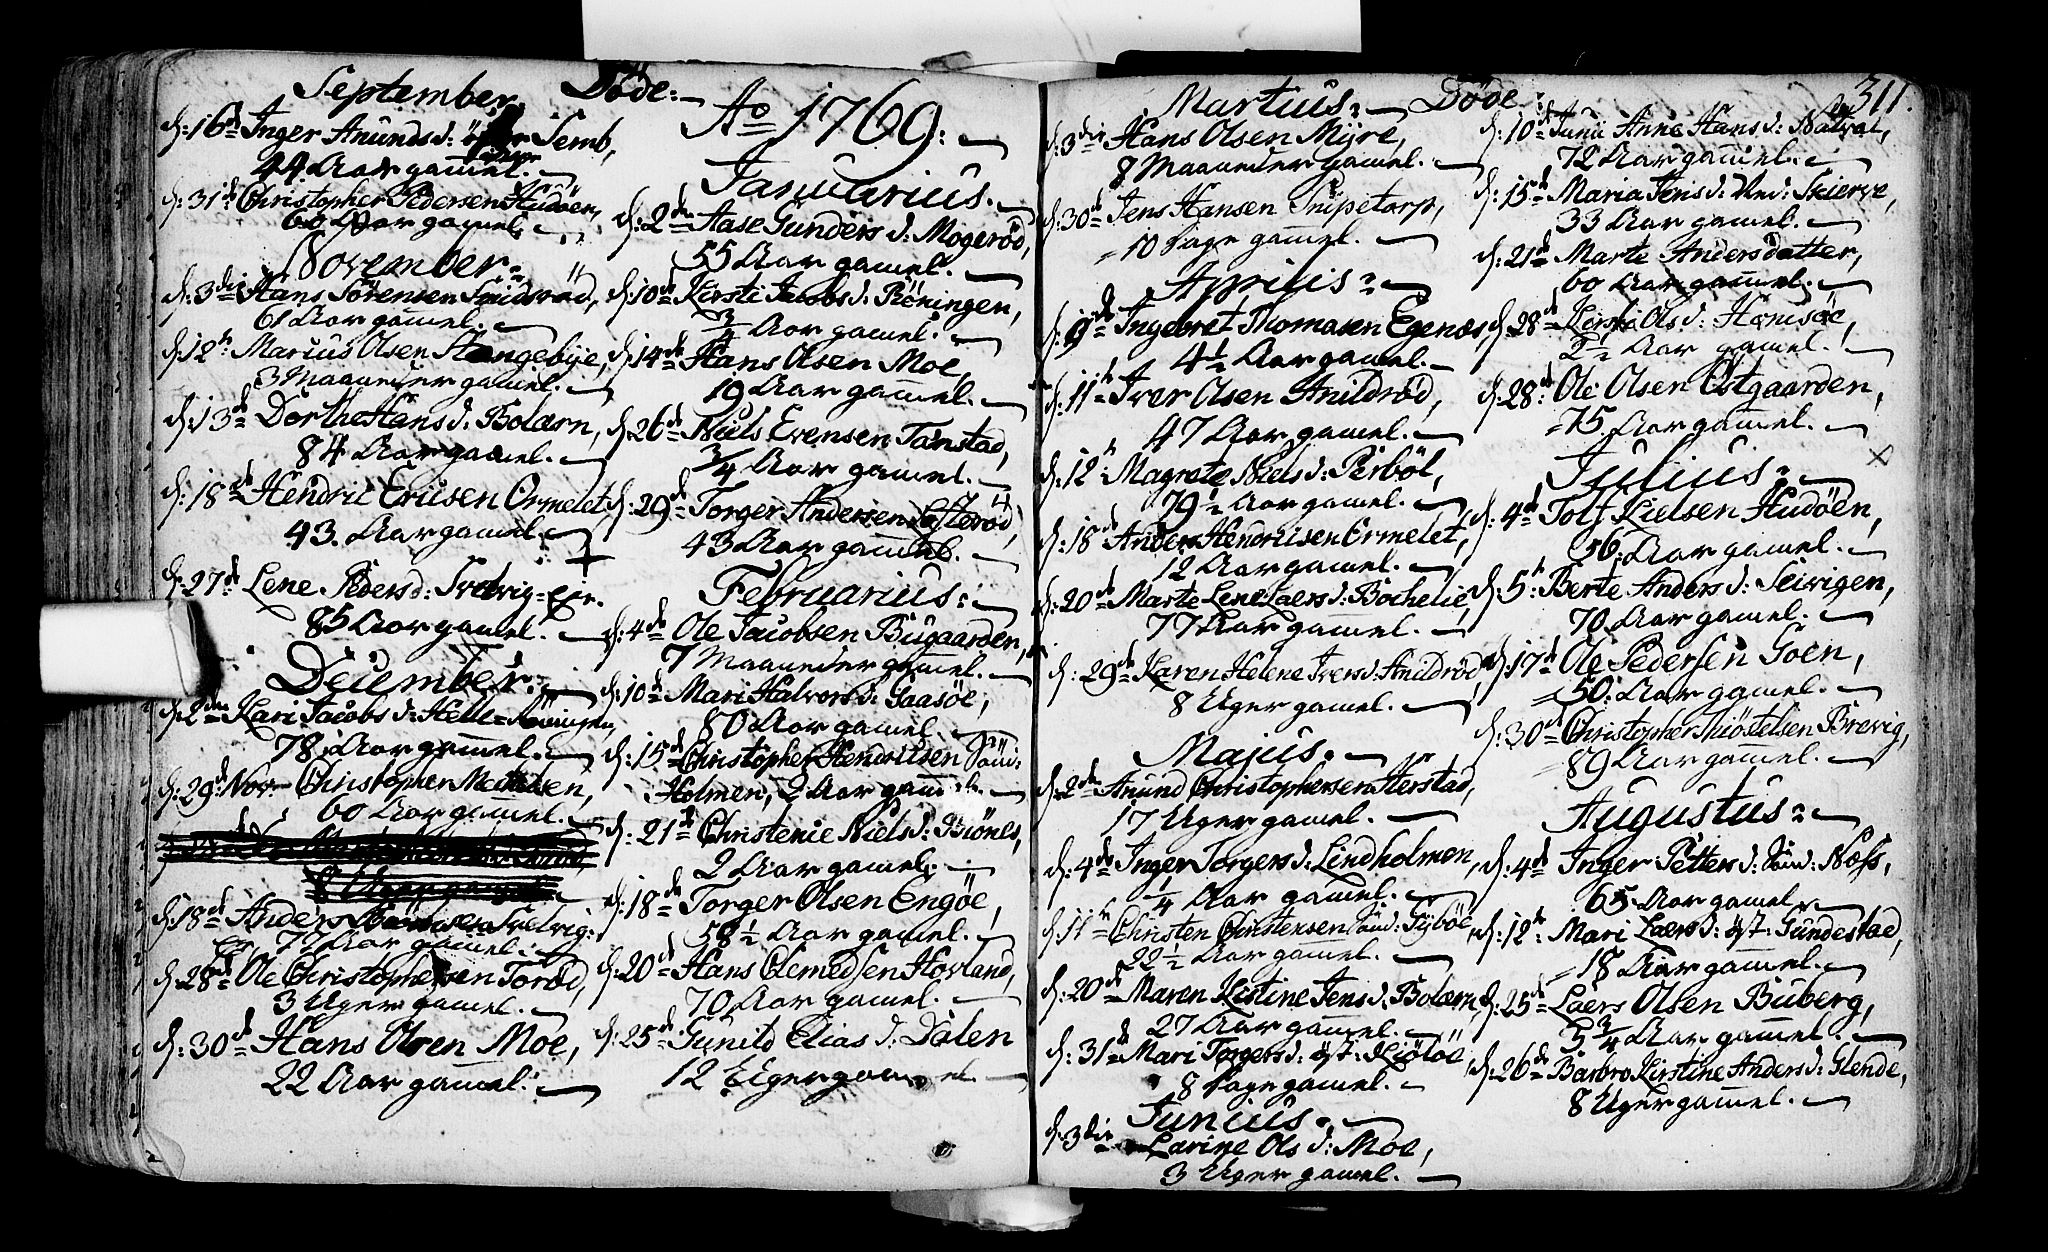 September. Döde:
d: 16de Inger Anunds d: Semb,
44 Aar gamel.
d: 31te Christopher Pedersen Hudöen,
60 Aar gamel.
November.
d: 3die Hans Sörensen
61 Aar gamel.
d: 12te Marius Olsen Stangebÿe,
3 Maaneder gamel.
d: 13de Dorthe Hans d: Bolærn,
84 Aar gamel.
d: 18de Hendric Ericsen Ormelet,
43. Aar gamel.
d: 27de Lene Peders d: Tredvig=
85 Aar gamel.
December.
d: 2den Kari Jacobs d: Helle=Röningen,
78 Aar gamel.
d: 29de Nov. Christopher Mathisen,
60 Aar gamel.
8 Uger gamel.
d: 18de Anders
77 Aar gamel.
d: 28de Ole Christophersen Toröd,
3 Uger gamel.
d: 30de Hans Olsen Moe,
22 Aar gamel.
Ao 1769.
Januarius.
d: 2den Aase Gunders d: Mogeröd,
55 Aar gamel.
d: 10de Kirsti Jacobs d: Röningen,
3/4 Aar gamel.
d: 14de Hans Olsen Moe,
19 Aar gamel.
d: 26de Niels Evensen Tanstad,
3/4 Aar gamel.
d: 29de Torger Andersen
43 Aar gamel.
Februarius.
d: 4de Ole Jacobsen Bugaarden,
7 Maaneder gamel.
d: 10de Mari Halvors d: Gaasöe,
80 Aar gamel.
d: 15de Christopher Hendricsen
Holmen, 2 Aar gamel.
d: 21de Christenie Niels d: Biönes,
2 Aar gamel.
d: 18de Torger Olsen Engöe,
58 1/2 Aar gamel.
d: 20de Hans Clemedsen Hovland,
70 Aar gamel.
d: 25de Gunild Elias d: Dalen
12 Uger gamel.
Martius. Döde:
311.
d: 3die Hans Olsen Myre,
8 Maaneder gamel.
d: 30de Jens Hansen Snipetorp,
10 Dage gamel.
Aprilis.
d: 9de Ingebret Thomasen Egenæs,
4 1/2 Aar gamel.
d: 11te Iver Olsen Anildröd,
47 Aar gamel.
d: 12te Magrete Niels d: Perböl,
79 1/2 Aar gamel.
d: 18de Anders Hendricsen Ormelet,
12 Aar gamel.
d: 20de Marte Lene Laers d: Bochelie,
77 Aar gamel.
d: 29de Karen Helene Ivers d: Anildröd,
8 Uger gamel.
Majus.
d: 2den Anund Christophersen Herstad,
17 Uger gamel.
d: 4de Inger Torgers d: Lindholmen,
1/4 Aar gamel.
d: 11te Christen Christensen Sönd: Gÿböe,
22 1/2 Aar gamel.
d: 20de Maren Kistine Jens d: Bolærn,
27 Aar gamel.
d: 31te Mari Torgers d: öst: Kiölöe,
8 Dage gamel.
Junius.
d: 3die Larine Ols d: Moe,
3 Uger gamel.
d: 10de Junii Anne Hans d: Natval,
72 Aar gamel.
d: 15de Maria Jens d: Ned: Skierve,
33 Aar gamel.
d: 21de Marte Andersdatter,
60 Aar gamel.
d: 28de Kirsti Ols d: Hemsöe,
2 1/2 Aar gamel.
d: 28de Ole Olsen Östgaarden,
75 Aar gamel.
Julius.
d: 4de Tolf Kielsen Hudöen,
56. Aar gamel.
d: 5te Berte Anders d: Seirigen,
70 Aar gamel.
d: 17de Ole Pedersen Goen,
50. Aar gamel.
d: 30de Christopher Kiöstelsen Brevig,
89 Aar gamel.
Augustus.
d: 4de Inger Petters d: Sönd: Næss,
65. Aar gamel.
d: 12te Mari Laers d: öst: Gundestad,
18 Aar gamel.
d: 25de Laers Olsen Buberg,
5 3/4 Aar gamel.
d: 26de Barbro Kirstine Anders d: Glende,
8 Uger gamel.